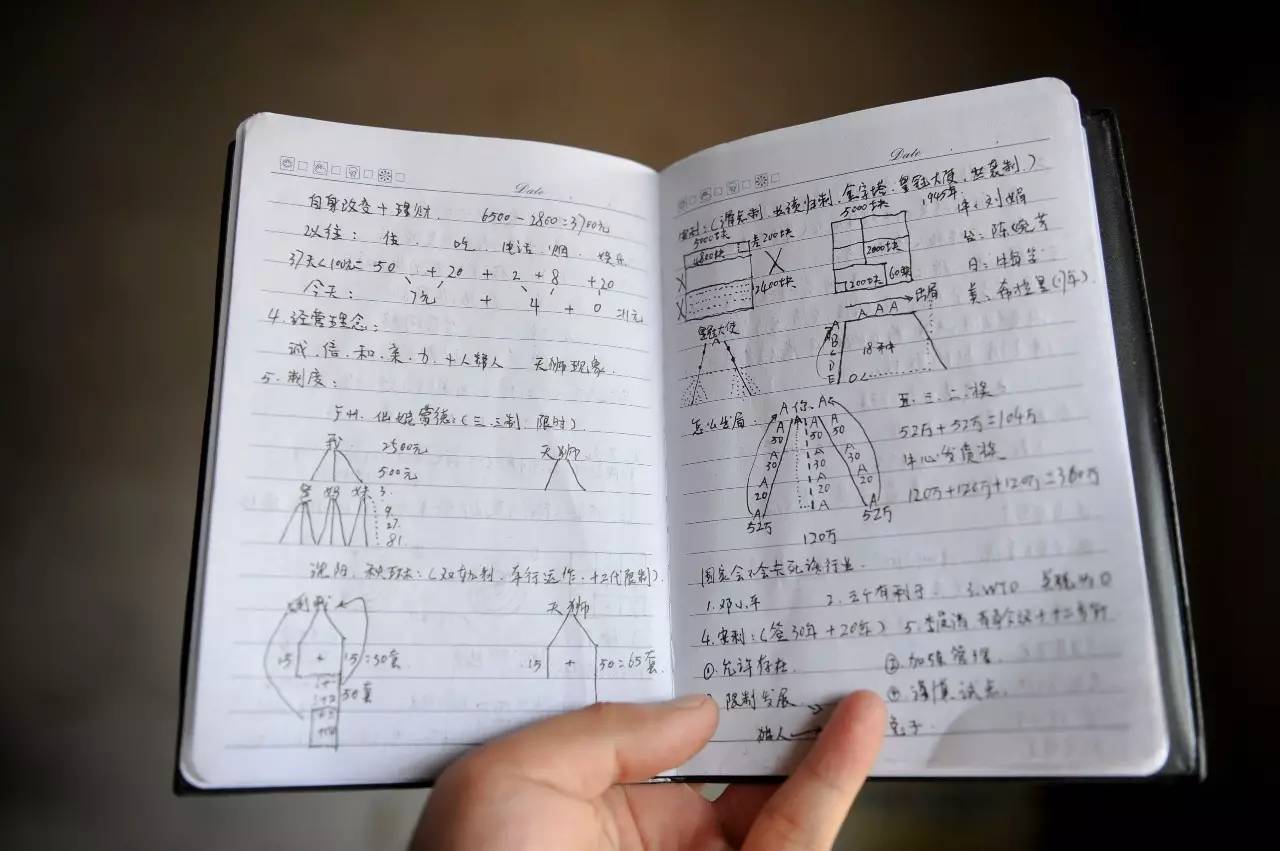 Date
自身改变+理财. 6500-2800=3700元
以往: 住. 吃 电话 烟 娱乐
37天<100元= 50 + 20 + 2 + 8 + 20
今天: 7元 + 4 + 0 =11元
4.经营理念:
诚.信.和.亲.力.+人帮人 天狮现象.
5.制度:
广州. 常德:(三.三制.限时)
我 2500元 天狮
500元
妈 妹 3.
9.
27.
81.
沈阳. (双轨制.车行运作.+2代限制).
我 天狮
15 + 15=30套 15 + 50=65套
50套
Date
安利:( 制. 归制. 金字塔.皇冠大使.世袭制.)
5000块 差200块 5000块 1945年
4800块 中:刘娟
X 2000块 台:陈婉芬
2400块 1200块 60块 日:
X 美:
皇冠大使 A A A 出局
A
B
C
D
E 0 18
怎么出局: A 你 A
50 50 50 五.三.二.奖
A A A 52万+52万=104万
30 30 30 中心发质奖
A A A 120万+120万+120万=360万
20 20 20
A A A
52万 52万
120万
国家会不会去死该行业.
1.邓小平 2.三个有利于. 3.WTO
4.安利:(签30年+20年) 5.李
①允许存在. ②加强管理.
限制发展 ④谨慎试点.
猎人 兔子.